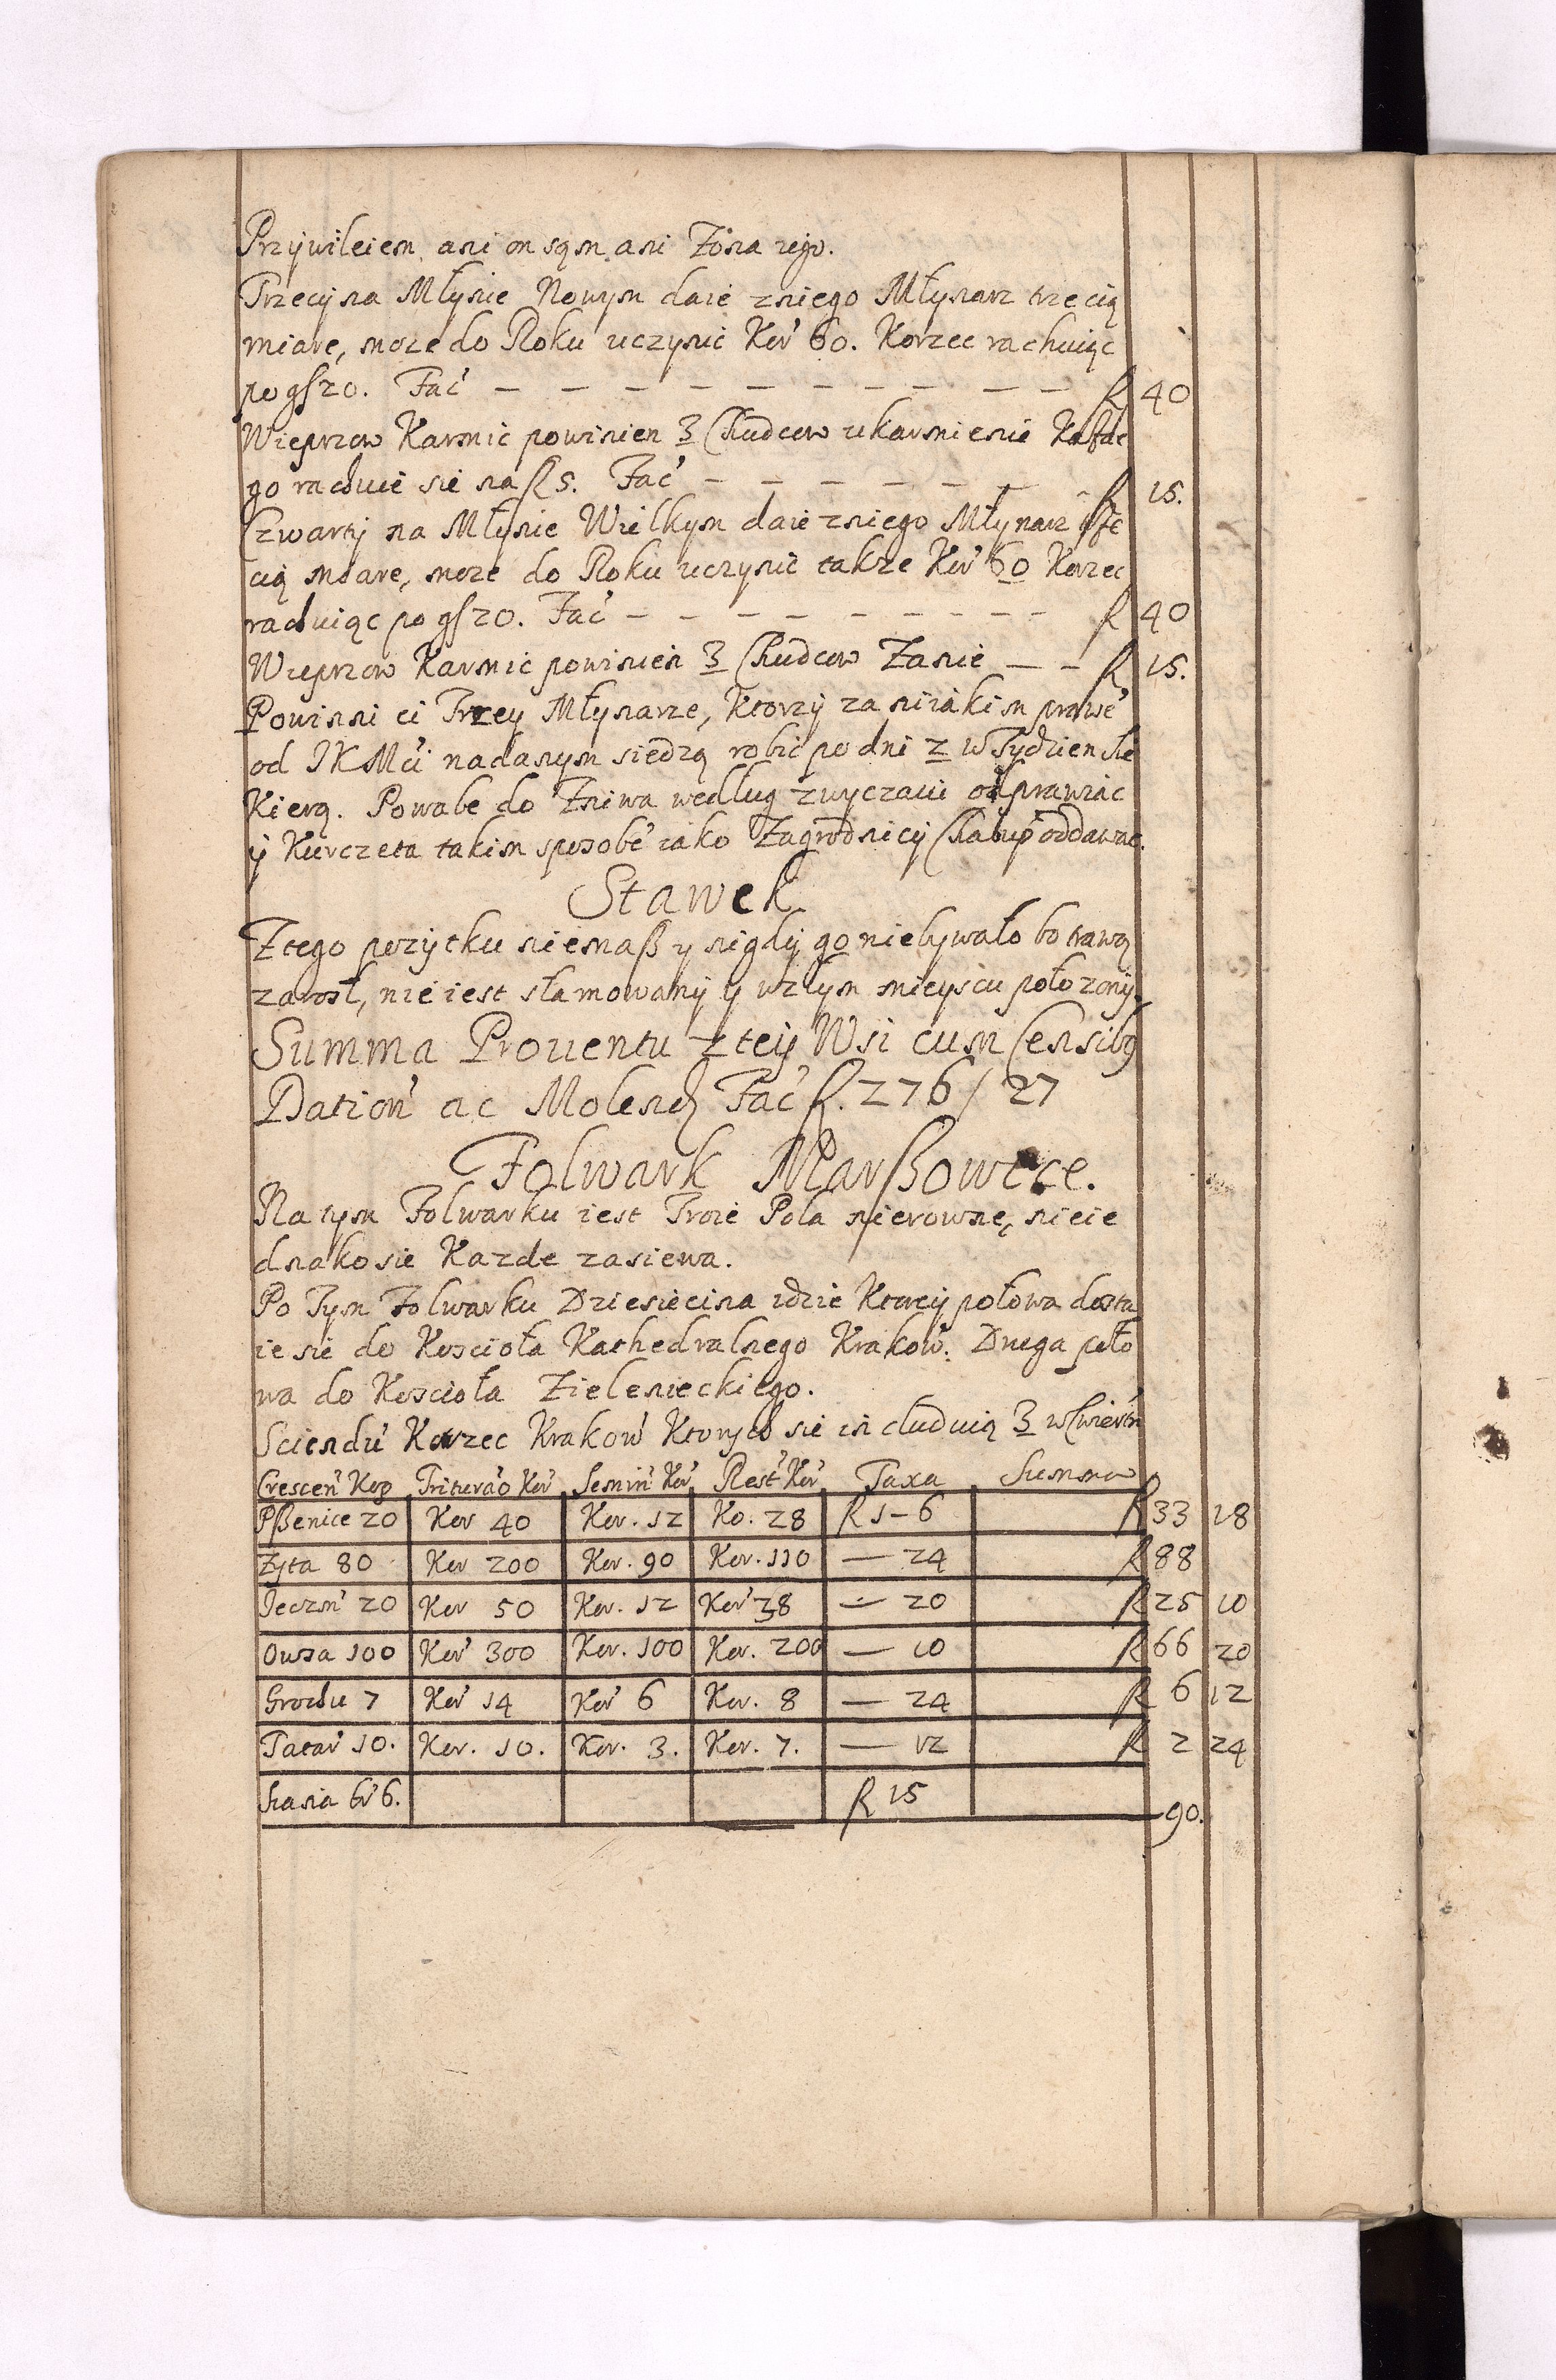 Przywileiem, ani on sam, ani Zona iego.
Trzeci na Młynie Nowym daie z niego Młynarz trzecią
miarę, może do Roku uczynić Kor 60. Korzec rachuiąc
po gſ 20. Fać — — — — — — — — — — fl 40
Wieprzow Karmić powinien 3 Chudcow ukarmienie Kaſde
go rachuie sie na fl 5. Fać — — — — — — fl 15.
Czwarty na Młynie Wielkym daie z niego Młynarz trze
cią miarę, może do Roku uczynić także Kor 60 Korzec
rachuiąc po gſ 20. Fać — — — — — — — — fl 40
Wieprzow Karmić powinien 3 Chudcow Zanie — — fl 15.
Powinni ci Trzey Młynarze, Ktorzy za niiakim prawe
od JKMci nadanym siedzą robić po dni 2 w Tydzien Sie
Kierą. Powabe do Zniwa według zwyczaiu odprawiac
y Kurczeta takim sposobe iako Zagrodnicy Chałup oddawac.
Stawek
Z tego pożytku niemaß y nigdy go niebywało bo trawą
zarosł, nie iest stamowany y w złym mieyscu położony.
Summa Prouentu z tey Wsi cum Censibq
Dation ac Molend Fać fl. 276 / 27
Folwark Marßowice.
Na tym Folwarku iest Troie Pola nierowne, nieie
dnako sie Kazde zasiewa.
Po Tym Folwarku Dziesiecina idzie Ktorey połowa dosta
ie sie do Koscioła Kathedralnego Krakow: Druga poło
wa do Koscioła Zielenieckiego.
Sciendu Korzec Krakow Ktorych sie in cluduią 3 w Cwiertn
Crescen Kop Triturao Kor Semin Kor Rest Kor Taxa Summa
Pßenice 20 Kor 40 Kor. 12 Ko. 28 fl 1 – 6 fl 33 18
Zyta 80 Kor 200 Kor. 90 Kor. 110 — 24 fl 88
Jeczm 20 Kor 50 Kor. 12 Kor 38 — 20 fl 25 10
Owsa 100 Kor 300 Kor. 100 Kor. 200 — 10 fl 66 20
Grochu 7 Kor 14 Kor 6 Kor. 8 — 24 fl 6 12
Tatar 10. Kor. 10. Kor. 3. Kor. 7. — 12 fl 2 24
Siana 6. fl 15 90.